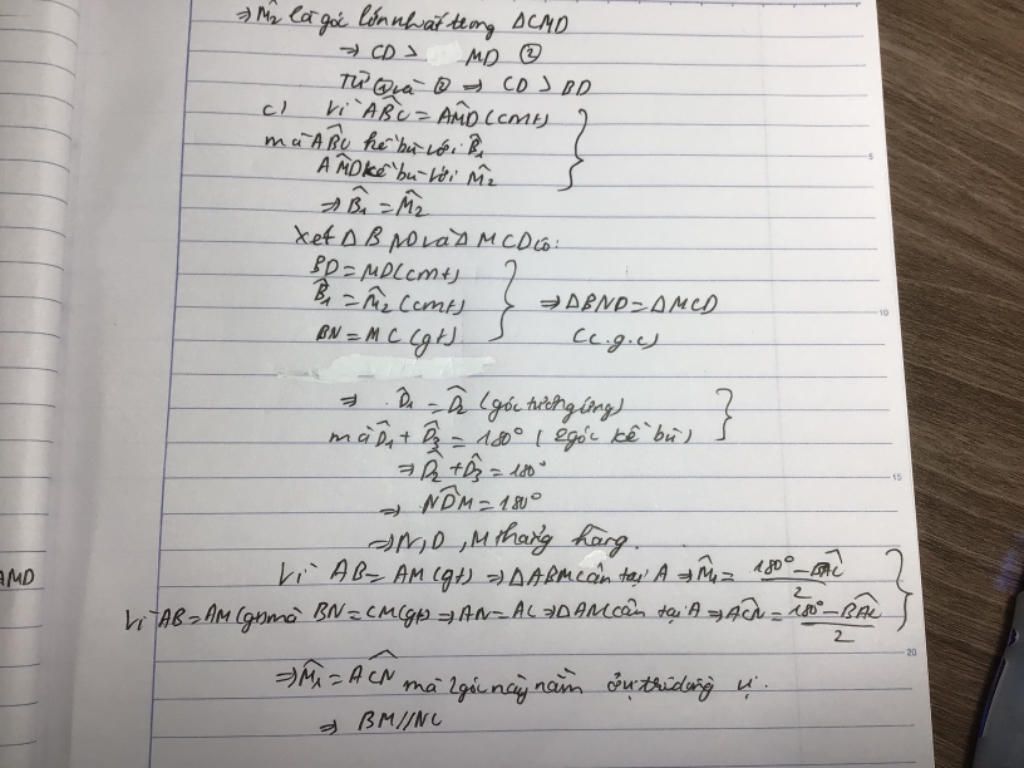 ⇒ M̂₂ là góc lớn nhất trong ΔCMD
⇒ CD > MD ②
Từ ① và ② ⇒ CD > BD
c) Vì AB̂C = AM̂D (cmt)
mà AB̂C kề bù với B̂₁
AM̂D kề bù với M̂₂
⇒ B̂₁ = M̂₂
Xét ΔBND và ΔMCD có:
BD = MD (cmt)
B̂₁ = M̂₂ (cmt) ⇒ ΔBND = ΔMCD
BN = MC (gt) (c.g.c)
⇒ D̂₁ = D̂₂ (góc tương ứng)
mà D̂₁ + D̂₃ = 180° (2 góc kề bù)
⇒ D̂₂ + D̂₃ = 180°
⇒ ND̂M = 180°
⇒ N, D, M thẳng hàng.
AMD
Vì AB = AM (gt) ⇒ ΔABM cân tại A ⇒ M̂₁ = (180° − BÂC)/2
Vì AB = AM (gt) mà BN = CM (gt) ⇒ AN = AC ⇒ ΔAM cân tại A ⇒ AĈN = (180° − BÂC)/2
⇒ M̂₁ = AĈN mà 2 góc này nằm ở vị trí đồng vị.
⇒ BM // NC
5
10
15
20